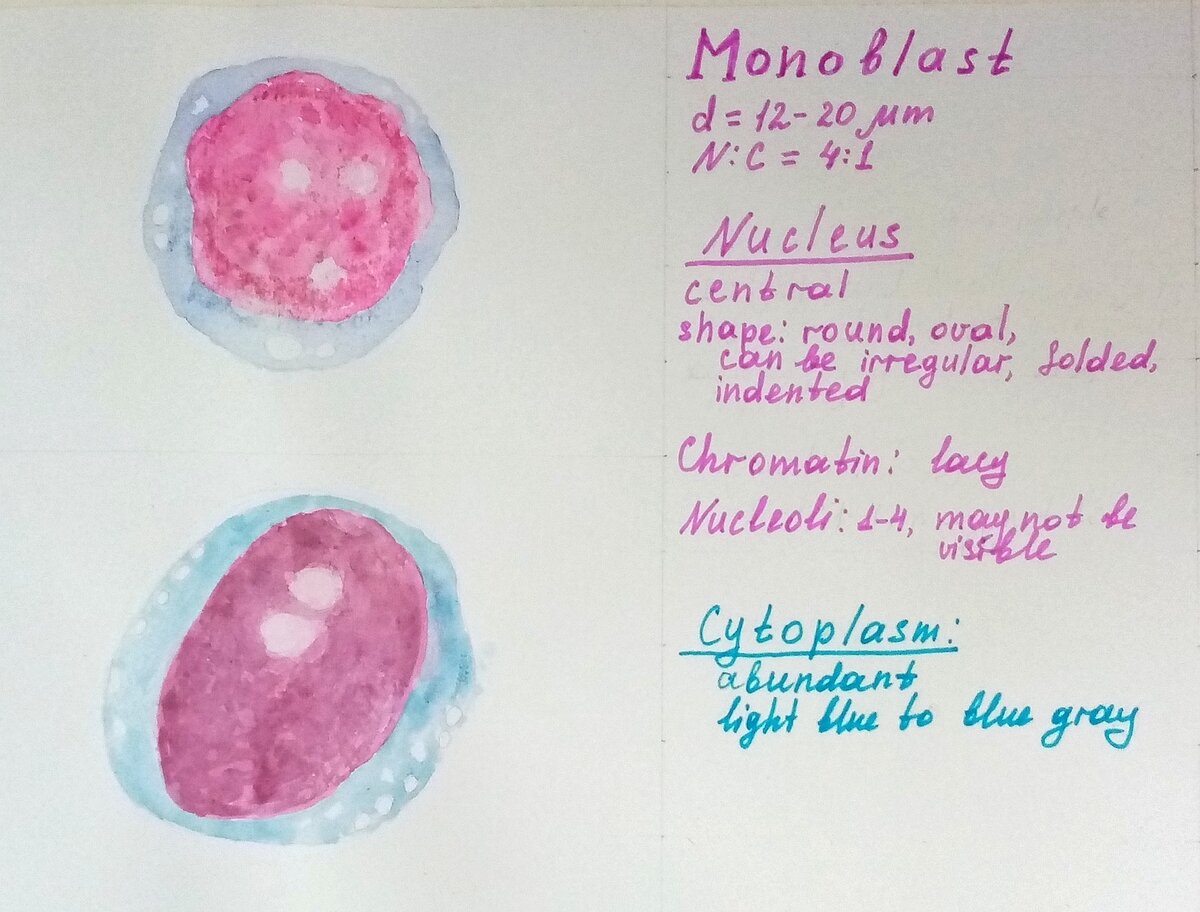 Monoblast
d = 12-20 µm
N:C = 4:1
Nucleus
central
shape: round, oval,
can be irregular, folded,
indented
Chromatin: lacy
Nucleoli: 1-4, may not be
visible
Cytoplasm:
abundant
light blue to blue gray